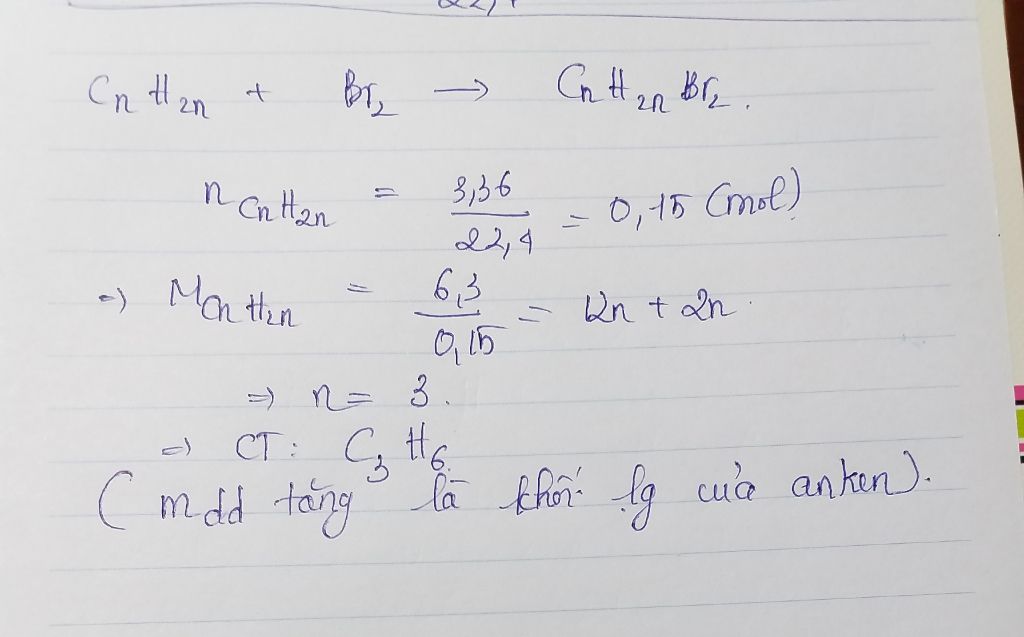 CnH2n + Br2 → CnH2nBr2.
nCnH2n = 3,36/22,4 = 0,15 (mol)
=) MCnH2n = 6,3/0,15 = 12n + 2n.
=) n = 3.
=) CT: C3H6.
(mdd tăng là khối lg của anken).